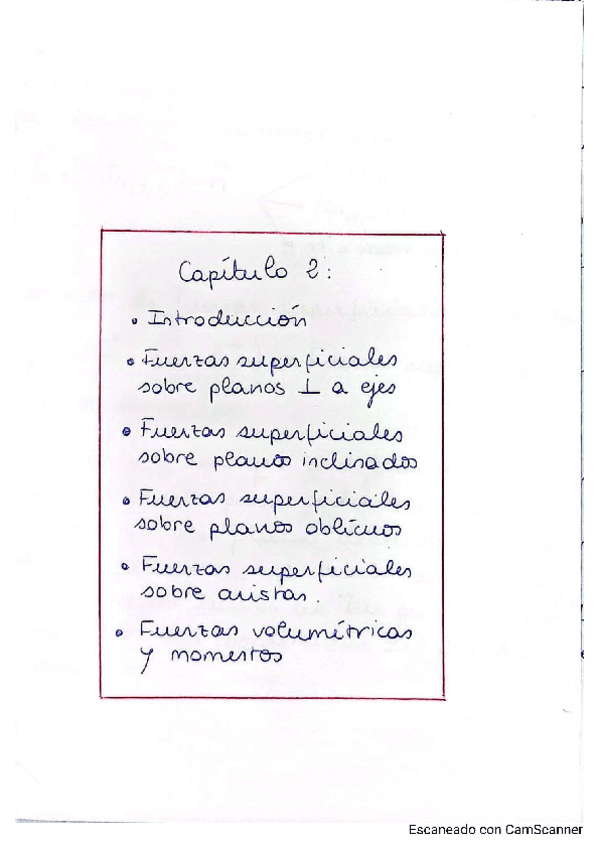 Capítulo 2:
• Introducción
• Fuerzas superficiales
sobre planos ⊥ a ejes
• Fuerzas superficiales
sobre planos inclinados
• Fuerzas superficiales
sobre planos oblícuos
• Fuerzas superficiales
sobre aristas.
• Fuerzas volumétricas
y momentos
Escaneado con CamScanner